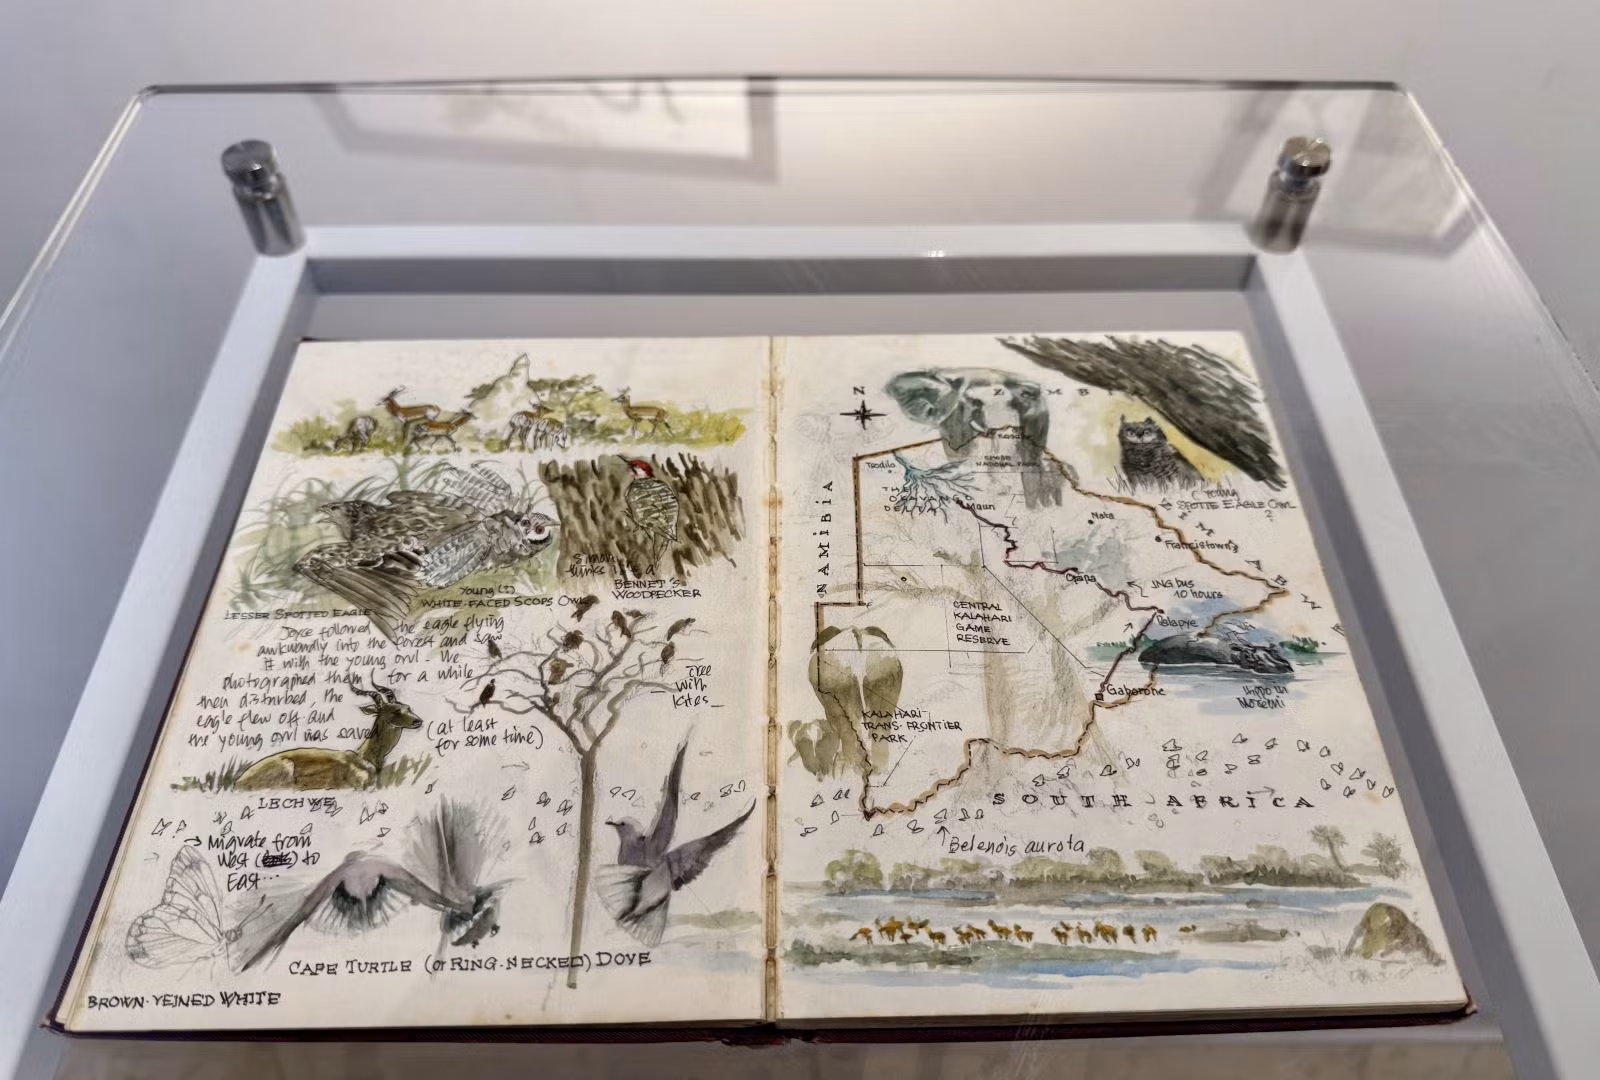 LESSER SPOTTED EAGLE
Young (?)
WHITE-FACED SCOPS OWL
Simon
thinks its a
BENNET'S
WOODPECKER
Joyce followed the eagle flying
awkwardly into the forest and saw
it with the young owl - We
photographed them for a while
then disturbed, the
eagle flew off and
the young owl was saved
(at least
for some time)
Tree
with
kites
LECHWE
→ Migrate from
West to
East...
CAPE TURTLE (or RING-NECKED) DOVE
BROWN-VEINED WHITE
N
ZAMBI
NAMIBIA
Tsodilo
Kasane
CHOBE
NATIONAL PARK
THE
OKAVANGO
DELTA
Maun
Nata
Francistown
(Young
SPOTTE EAGLE OWL
?
Orapa
JNG bus
10 hours
Palapye
CENTRAL
KALAHARI
GAME
RESERVE
Gaborone
Hippo in
Moremi
KALAHARI-
TRANS-FRONTIER
PARK
SOUTH AFRICA
Belenois aurota